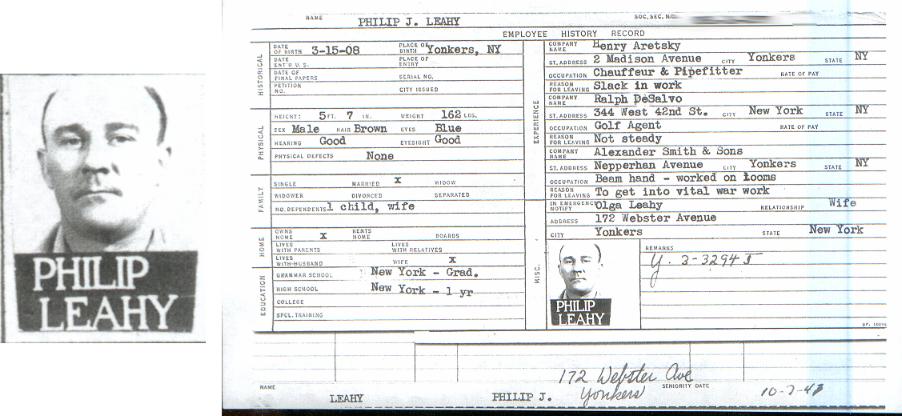 NAME PHILIP J. LEAHY SOC. SEC. NO.
EMPLOYEE HISTORY RECORD
HISTORICAL
DATE OF BIRTH 3-15-08 PLACE OF BIRTH Yonkers, NY
DATE ENT'D U.S. PLACE OF ENTRY
DATE OF FINAL PAPERS SERIAL NO.
PETITION NO. CITY ISSUED
PHYSICAL
HEIGHT: 5 FT. 7 IN. WEIGHT 162 LBS.
SEX Male HAIR Brown EYES Blue
HEARING Good EYESIGHT Good
PHYSICAL DEFECTS None
FAMILY
SINGLE MARRIED X WIDOW
WIDOWER DIVORCED SEPARATED
NO. DEPENDENTS 1 child, wife
HOME
OWNS HOME X RENTS HOME BOARDS
LIVES WITH PARENTS LIVES WITH RELATIVES
LIVES WITH HUSBAND WIFE X
EDUCATION
GRAMMAR SCHOOL New York - Grad.
HIGH SCHOOL New York - 1 yr
COLLEGE
SPCL. TRAINING
EXPERIENCE
COMPANY NAME Henry Aretsky
ST. ADDRESS 2 Madison Avenue CITY Yonkers STATE NY
OCCUPATION Chauffeur & Pipefitter RATE OF PAY
REASON FOR LEAVING Slack in work
COMPANY NAME Ralph DeSalvo
ST. ADDRESS 344 West 42nd St. CITY New York STATE NY
OCCUPATION Golf Agent RATE OF PAY
REASON FOR LEAVING Not steady
COMPANY NAME Alexander Smith & Sons
ST. ADDRESS Nepperhan Avenue CITY Yonkers STATE NY
OCCUPATION Beam hand - worked on looms
REASON FOR LEAVING To get into vital war work
MISC.
IN EMERGENCY NOTIFY Olga Leahy RELATIONSHIP Wife
ADDRESS 172 Webster Avenue
CITY Yonkers STATE New York
REMARKS
Y. 3-3294 J
PHILIP
LEAHY
PHILIP
LEAHY
172 Webster Ave
Yonkers
NAME LEAHY PHILIP J. SENIORITY DATE